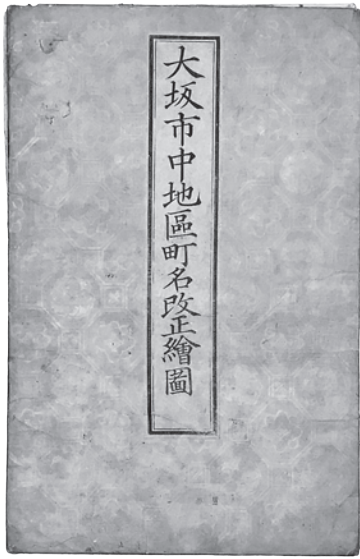 大坂市中地區町名改正繪圖